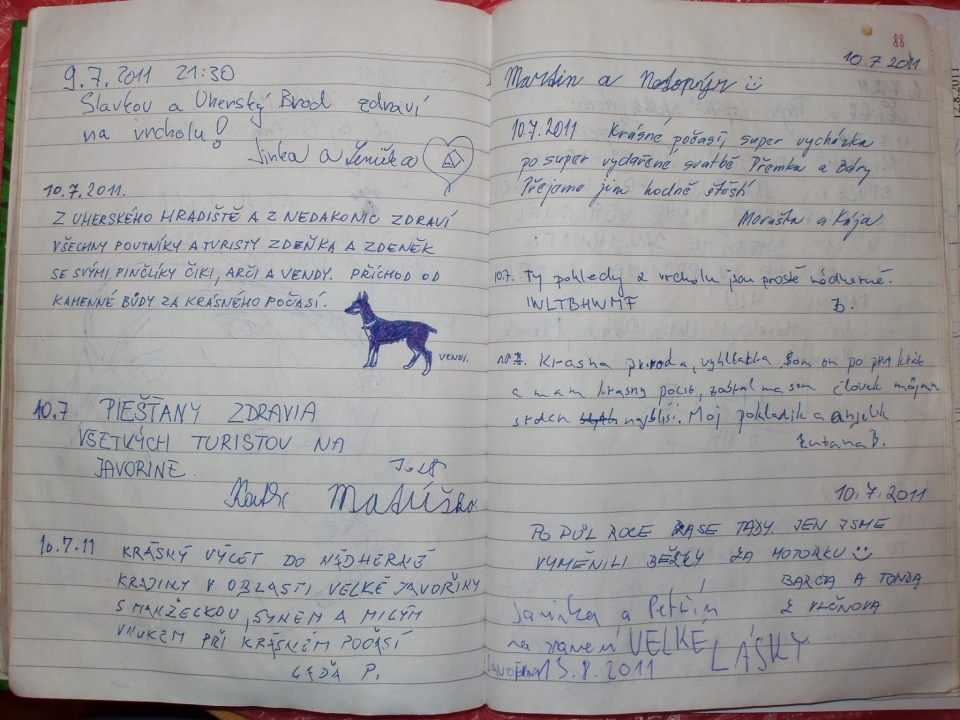 9.7.2011 21:30
Slavkov a Uherský Brod zdraví
na vrcholu!
Jirka a Lenička
10.7.2011.
Z UHERSKÉHO HRADIŠTĚ A Z NEDAKONIC ZDRAVÍ
VŠECHNY POUTNÍKY A TURISTY ZDEŇKA A ZDENĚK
SE SVÝMI PINČLÍKY ČIKI, ARČI A VENDY. PŘÍCHOD OD
KAMENNÉ BÚDY ZA KRÁSNÉHO POČASÍ.
VENDI.
10.7 PIEŠŤANY ZDRAVIA
VŠETKÝCH TURISTOV NA
JAVORINE.
Matúško
10.7.11 KRÁSNÝ VÝLET DO NÁDHERNÉ
KRAJINY V OBLASTI VELKÉ JAVOŘINY
S MANŽELKOU, SYNEM A MILÝM
VNUKEM PŘI KRÁSNÉM POČASÍ
LEĎA P.
88
10.7 2011
Martin a Netopýr
10.7.2011 Krásné počasí, super vycházka
po super vydařené svatbě Přemka a Báry
Přejeme jim hodně štěstí
Maruška a Kája.
10.7. Ty pohledy z vrcholu jsou prostě nádherné.
IWLTBHWMF B.
Krasna priroda, vyhliatka. Som tu po prvy krát
a mam krasny pocit, zobral ma sem človek môjmu
srdcu najbližší. Moj pokladik a anjelik
Zuzana B.
10.7.2011
PO PŮL ROCE ZASE TADY. JEN JSME
VYMĚNILI BĚŽKY ZA MOTORKU
BARČA A TONDA
Z VLČNOVA
Janinka a Petřín
na znamení VELKÉ LÁSKY
Javořina 13.8.2011